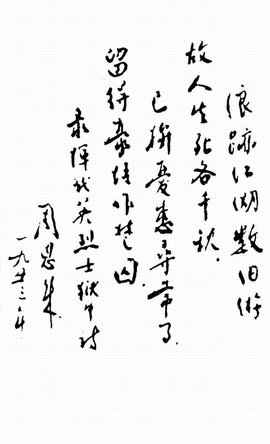 浪跡江湖数旧游
故人生死各千秋.
已擯憂患尋常事
留得豪情作楚囚.
录惲代英烈士獄中詩
周恩来
一九五三年.